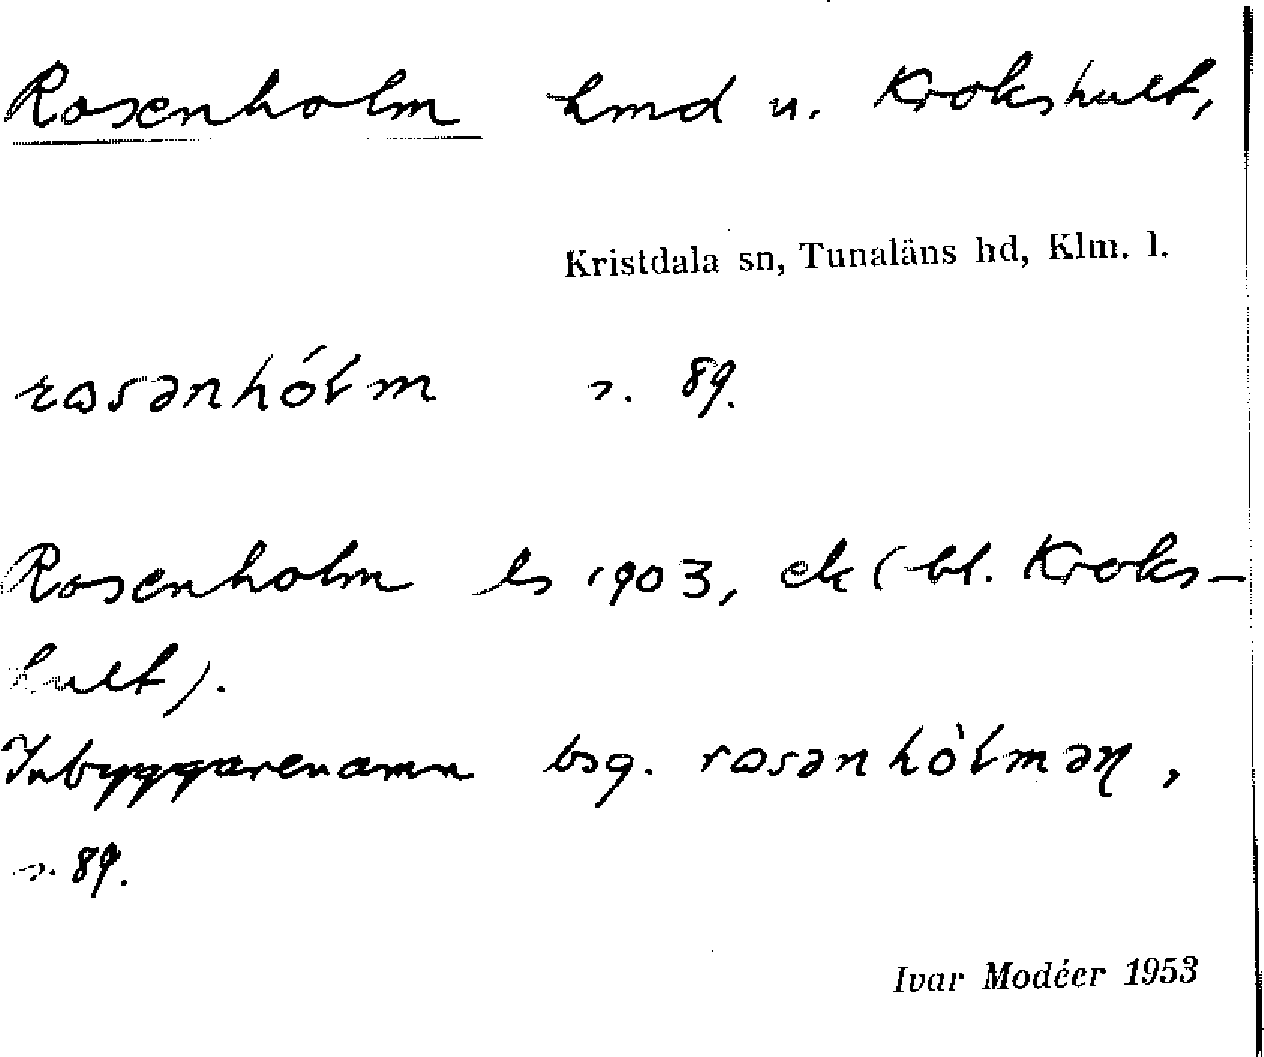 Rosenholm hmd u. Krokshult,
Kristdala sn, Tunaläns hd, Klm. l.
rosənhólm n. 89.
Rosenholm ls 1903, ek (bl. Kroks-
hult).
Inbyggarenamn bsg. rosənhòlmən,
n. 89.
Ivar Modéer 1953